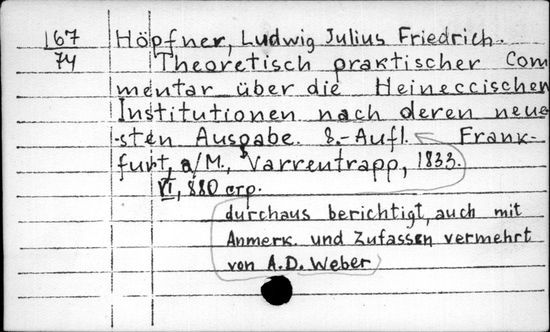 167 Höpfner, Ludwig Julius Friedrich.
74 Theoretisch praktischer Com
mentar über die Heineccischen
Institutionen nach deren neue
-sten Ausgabe. 8.-Aufl. Frank-
furt, a/M., Varrentrapp, 1833.
VI, 880 стр.
durchaus berichtigt, auch mit
Anmerk. und Zufassen vermehrt
von A.D. Weber